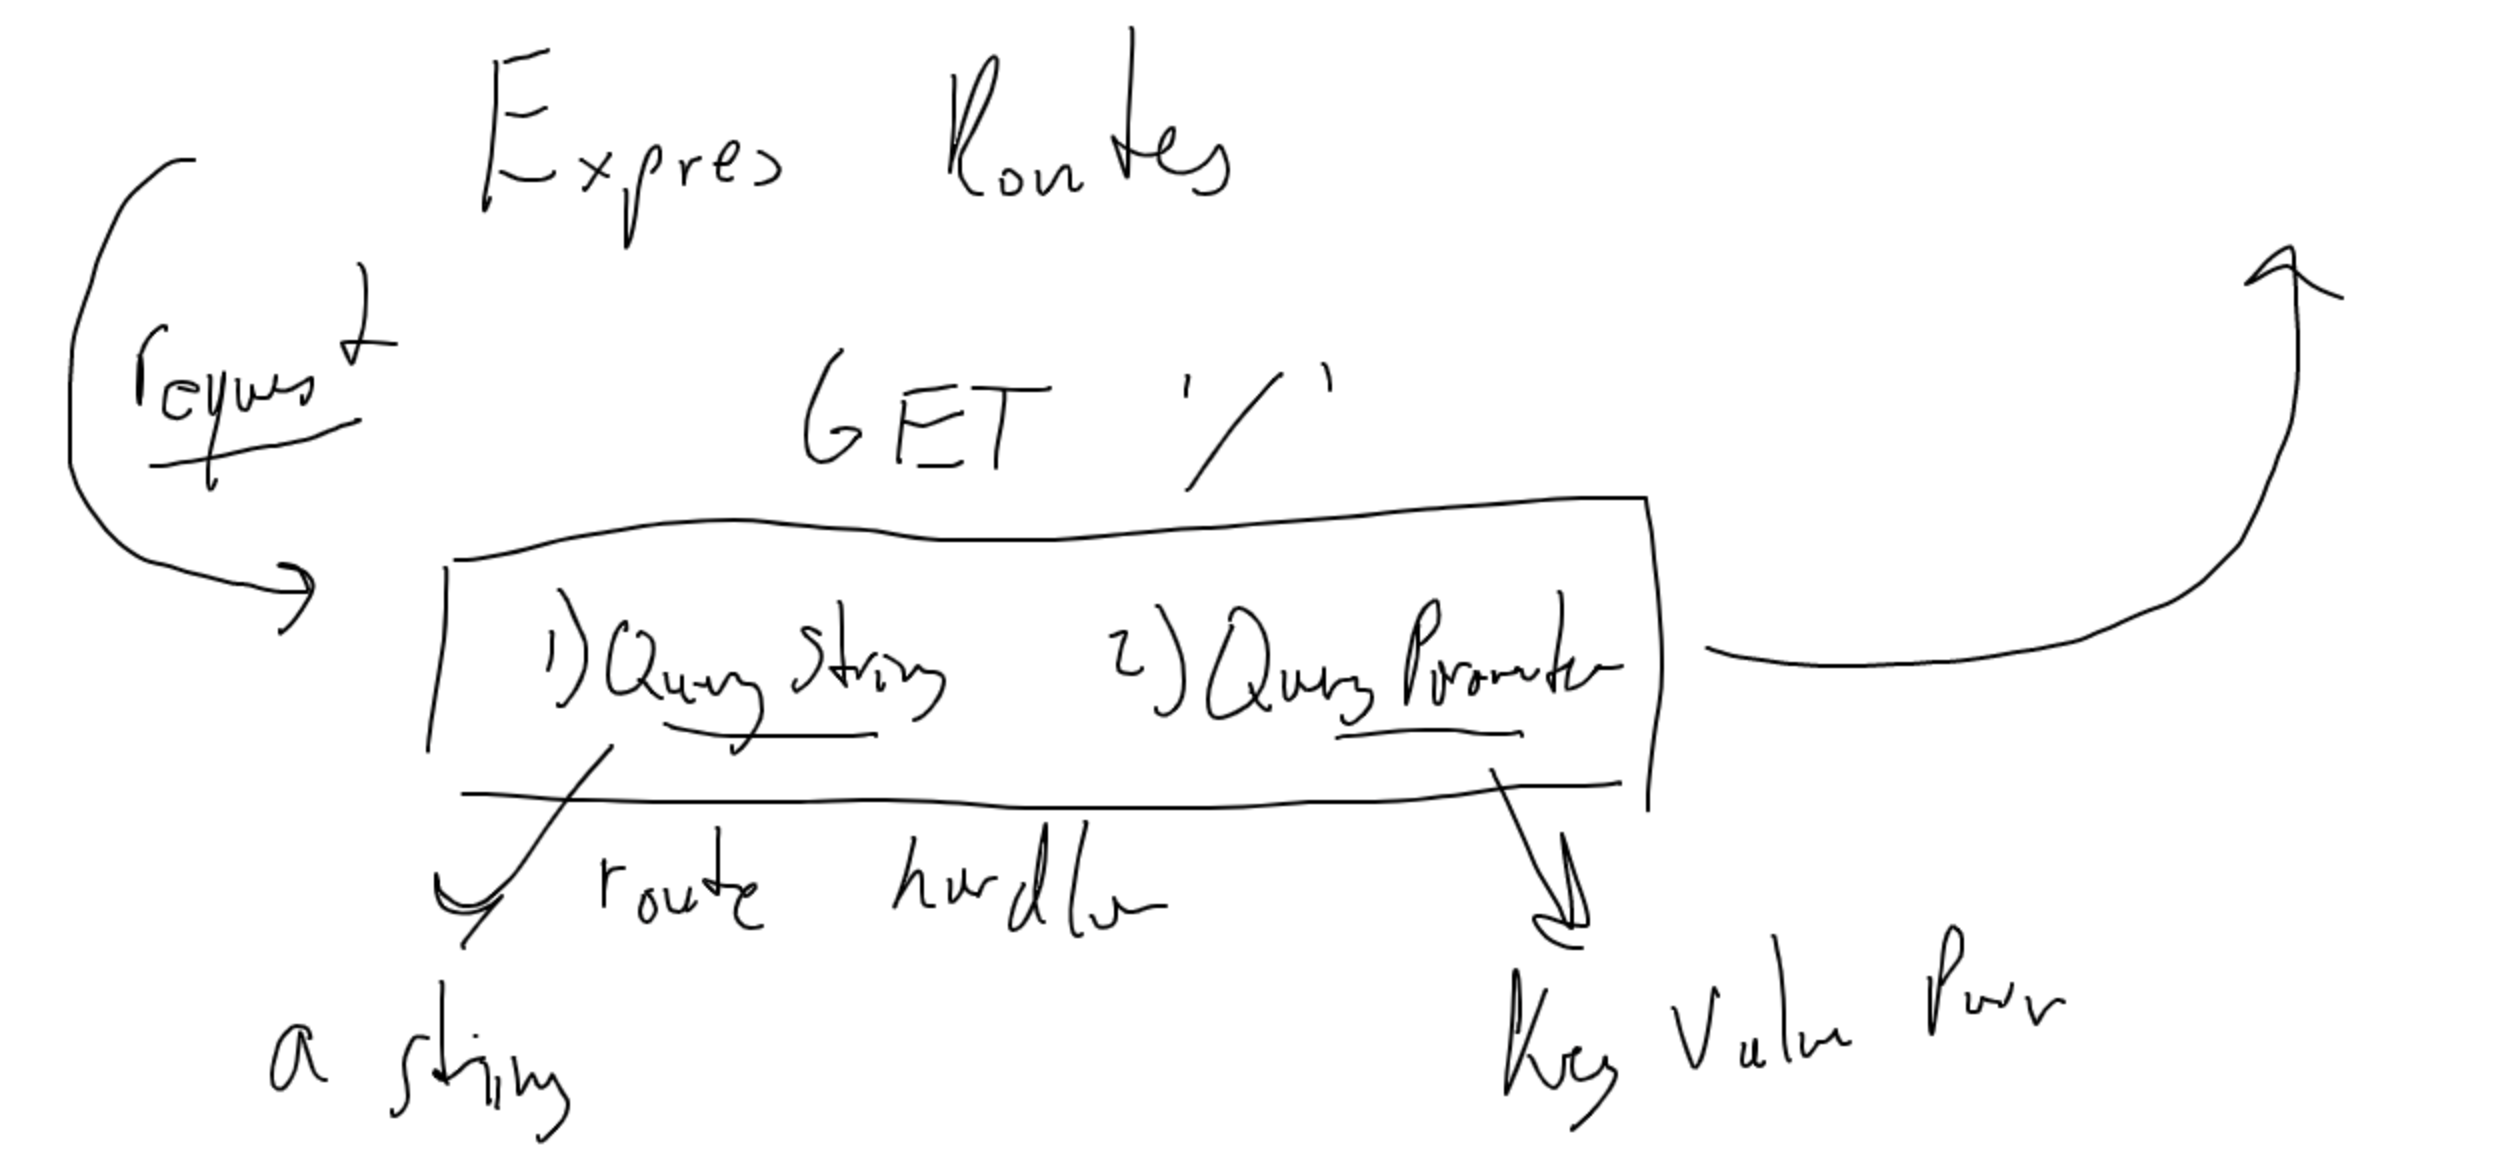 Expres Routes
request
GET '/'
1) Query String 2) Query Parameter
route handler
a string
Key Value Pair